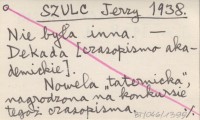 SZULC Jerzy 1938.
Nie była inna. —
Dekada [czasopismo aka-
demickie].
Nowela "taternicka",
nagrodzona na konkursie
tegoż czasopisma. ./.